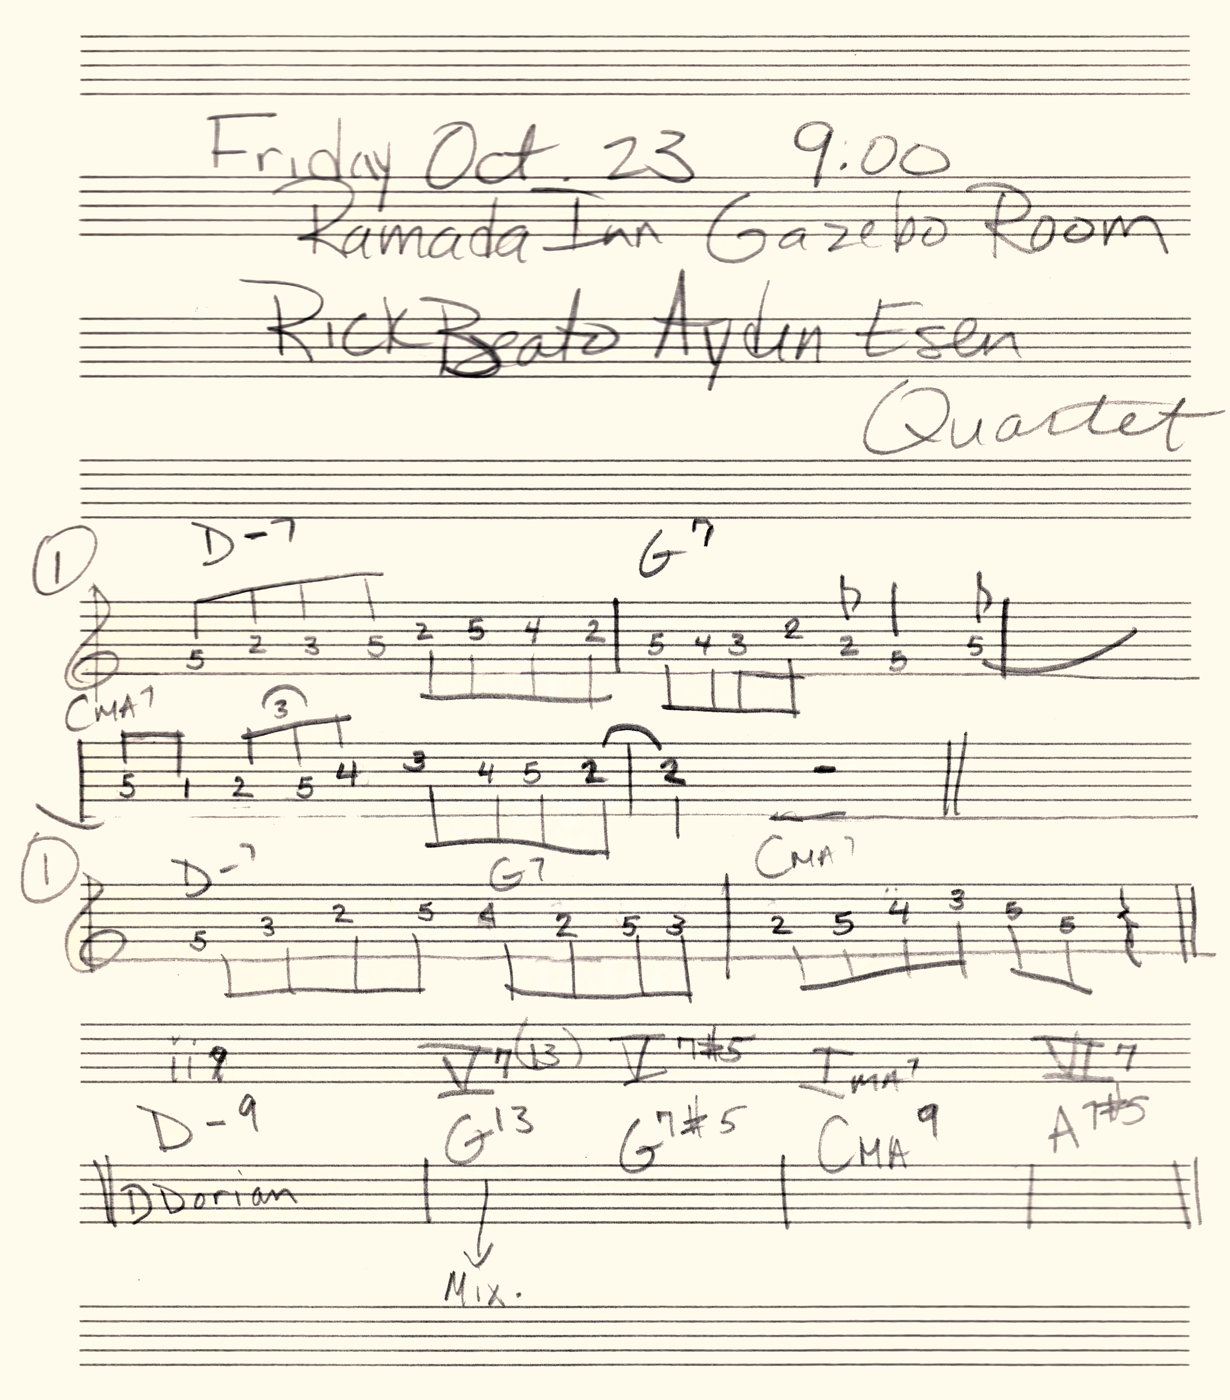 Friday Oct. 23 9:00
Ramada Inn Gazebo Room
Rick Beato Aydin Esen
Quartet
1 D-7 G7
5 2 3 5 2 5 4 2 5 4 3 2 2 5 5
CMA7 3
5 1 2 5 4 3 4 5 2 2
1 D-7 G7 CMA7
5 3 2 5 4 2 5 3 2 5 4 3 5 5
ii9 V7(13) V7#5 IMA7 VI7
D-9 G13 G7#5 CMA9 A7#5
D Dorian
Mix.